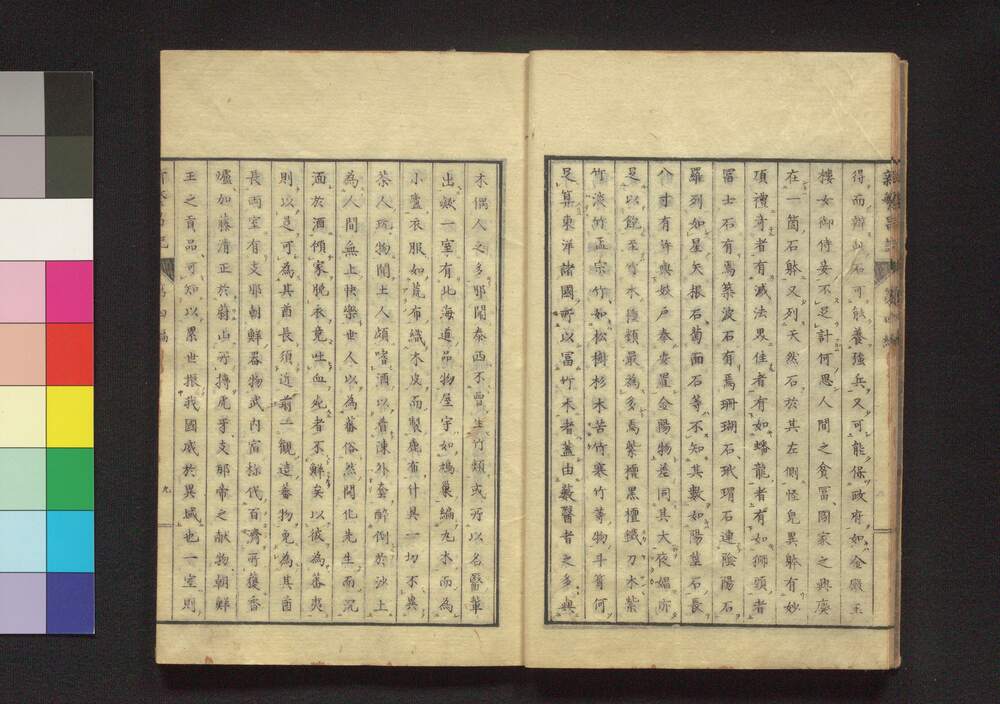 得而辯此石可能養強兵又可能保政府如金殿玉
樓女御侍妾不足計何思人間之貧冨國家之興廢
在一箇石躰又列天然石於其左側怪皃異躰有妙
項禮穿者有滅法界佳者有如蟠龍者有如獅頭者
冨士石有焉築波石有焉珊瑚石玳瑁石連陰陽石
羅列如星矢根石菊面石等不知其數如陽莖石長
八寸有許與妓戶奉安置金陽物差同其大夜媚亦
足以飽至竹木種類最為多焉紫檀黑檀鐵刀木紫
竹淡竹孟宗竹如松樹杉木苦竹寒竹等物斗筲何
足算東洋諸國所以冨竹木者蓋由藪醫者之多與
木偶人之多耶聞泰西不曽生竹類或所以名醫輩
出歟一室有北海道品物屋宇如鳩巢編丸木而為
小盧衣服如荒布織木皮而製鹿布什具一切不異
茶人玩物聞土人頗嗜酒以肴陳外套醉倒於沙土
為人間無上快樂世人以為蕃俗然開化先生而沉
湎於酒傾家脫衣竟吐血死者不鮮矣以彼為蕃夷
則以是可為其酋長須近前一觀遠蕃物免為其酋
長西室有支那朝鮮器物武內宿祢伐百濟所獲香
爐如藤清正於蔚山所搏虎牙支那帝之献物朝鮮
王之貢品可知以累世振我國威於異域也一室則
九